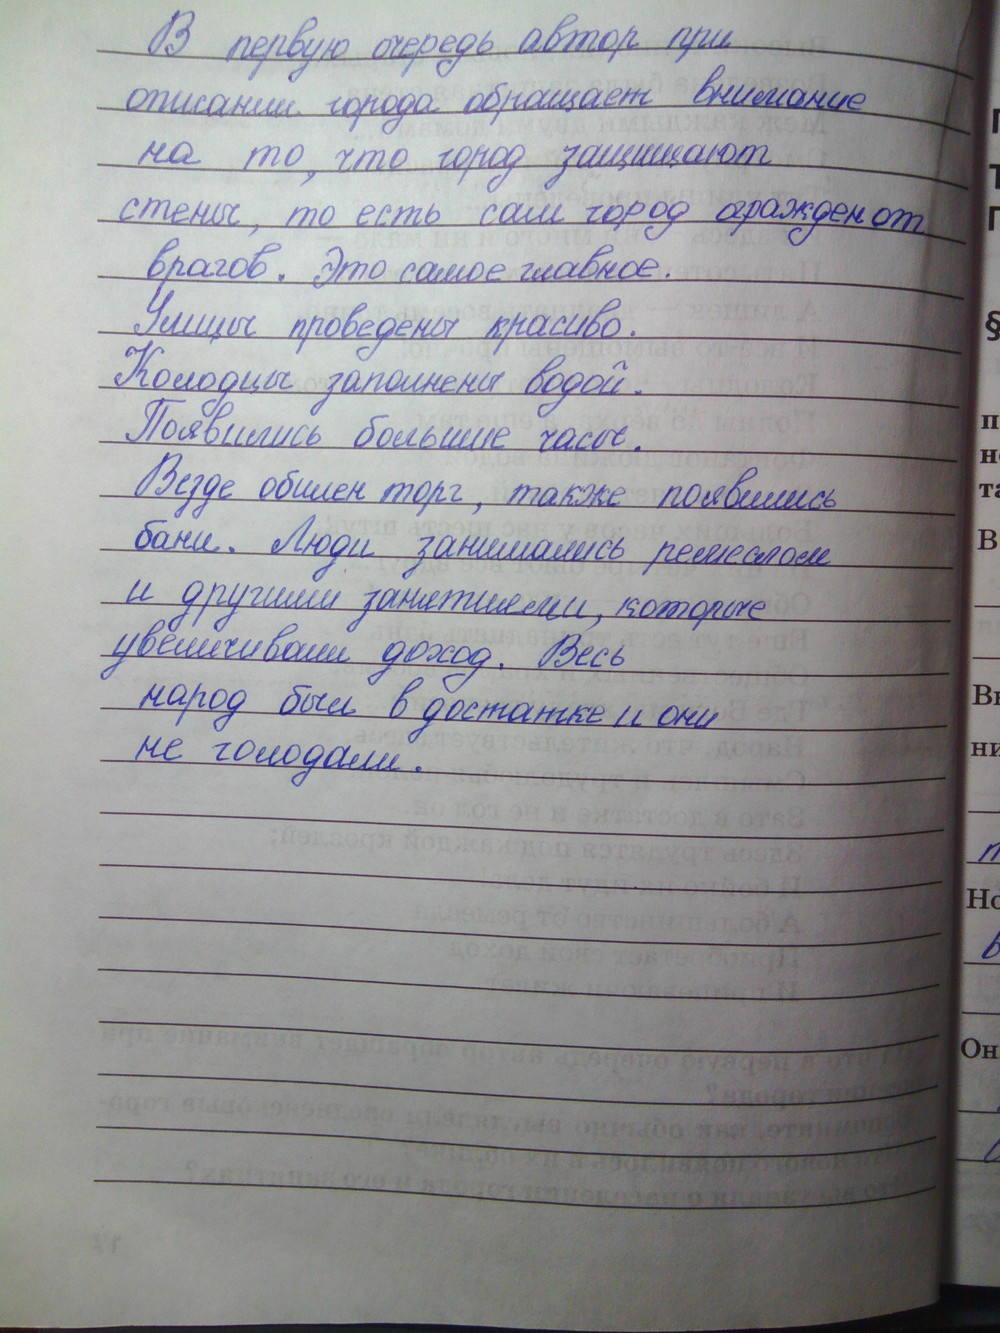 В первую очередь автор при
описании города обращает внимание
на то, что город защищают
стены, то есть сам город огражден от
врагов. Это самое главное.
Улицы проведены красиво.
Колодцы заполнены водой.
Появились большие часы.
Везде обилен торг, также появились
бани. Люди занимались ремеслом
и другими занятиями, которые
увеличивали доход. Весь
народ был в достатке и они
не голодали.
§
В
Но
Он